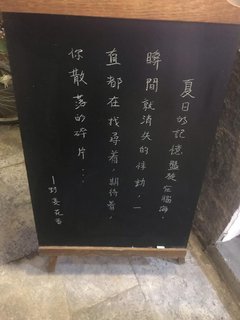 夏日的記憶盤旋在腦海,
瞬間就消失的悸動,一
直都在找尋着,期待着,
你散落的碎片...